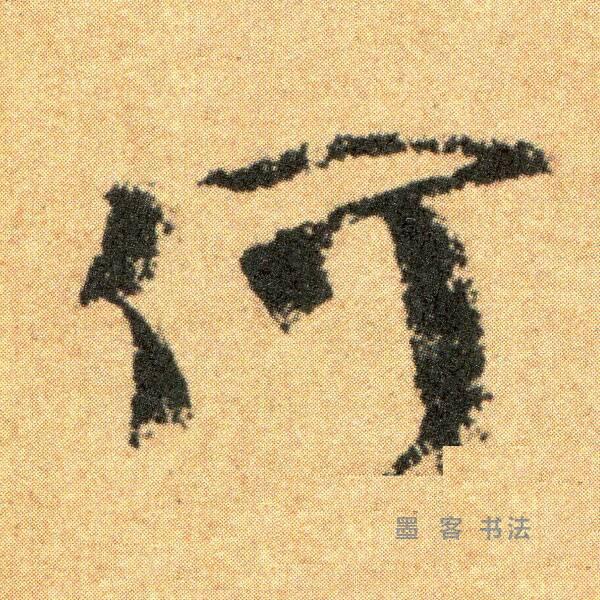 何
墨客书法